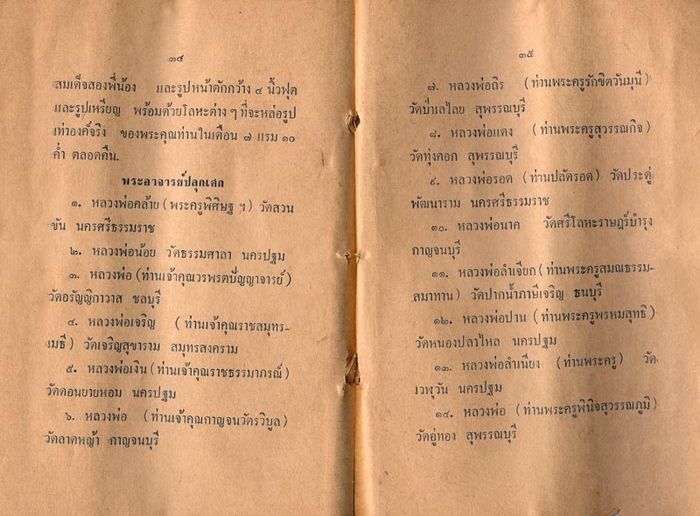 ๓๔
สมเด็จสองพี่น้อง และรูปหน้าตักกว้าง ๔ นิ้วฟุต
และรูปเหรียญ พร้อมด้วยโลหะต่าง ๆ ที่จะหล่อรูป
เท่าองค์จริง ของพระคุณท่านในเดือน ๗ แรม ๑๐
ค่ำ ตลอดคืน.
พระอาจารย์ปลุกเศก
๑. หลวงพ่อคล้าย (พระครูพิศิษฐ ฯ) วัดสวน
ขัน นครศรีธรรมราช
๒. หลวงพ่อน้อย วัดธรรมศาลา นครปฐม
๓. หลวงพ่อ (ท่านเจ้าคุณวรพรตปัญญาจารย์)
วัดอรัญญิกาวาส ชลบุรี
๔. หลวงพ่อเจริญ (ท่านเจ้าคุณราชสมุทร-
เมธี) วัดเจริญสุขาราม สมุทรสงคราม
๕. หลวงพ่อเงิน (ท่านเจ้าคุณราชธรรมาภรณ์)
วัดดอนยายหอม นครปฐม
๖. หลวงพ่อ (ท่านเจ้าคุณกาญจนวัตรวิบูล)
วัดลาดหญ้า กาญจนบุรี
๓๕
๗. หลวงพ่อถิร (ท่านพระครูรักขิตวันมุนี)
วัดป่าเลไลย สุพรรณบุรี
๘. หลวงพ่อแดง (ท่านพระครูสุวรรณกิจ)
วัดทุ่งคอก สุพรรณบุรี
๙. หลวงพ่อรอด (ท่านปลัดรอด) วัดประดู่
พัฒนาราม นครศรีธรรมราช
๑๐. หลวงพ่อนาค วัดศรีโลหะราษฎร์บำรุง
กาญจนบุรี
๑๑. หลวงพ่อลำเจียก (ท่านพระครูสมณธรรม-
สมาทาน) วัดปากน้ำภาษีเจริญ ธนบุรี
๑๒. หลวงพ่อปาน (ท่านพระครูพรหมสุทธิ)
วัดหนองปลาไหล นครปฐม
๑๓. หลวงพ่อสำเนียง (ท่านพระครู) วัด
เวฬุวัน นครปฐม
๑๔. หลวงพ่อ (ท่านพระครูพินิจสุวรรณภูมิ)
วัดอู่ทอง สุพรรณบุรี